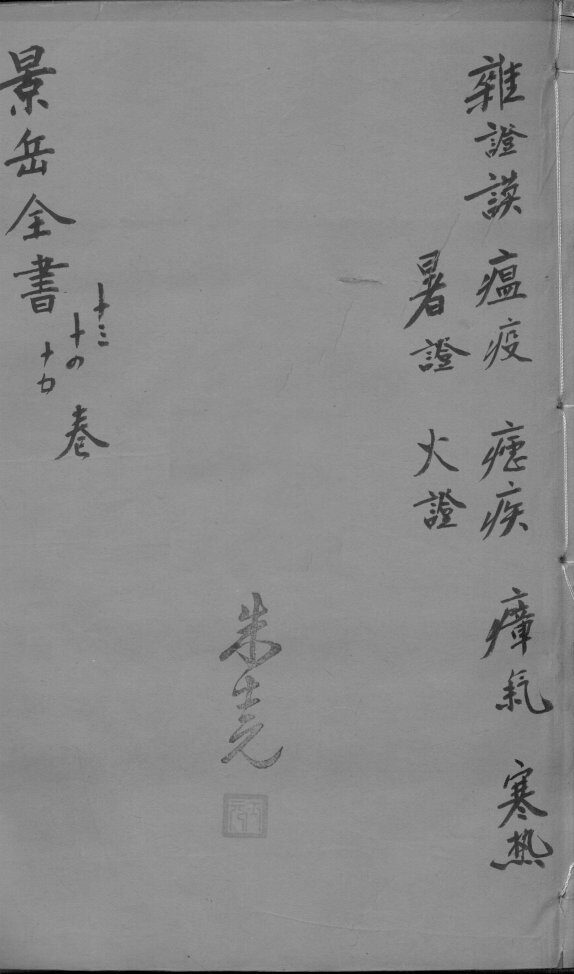 雜證謨 瘟疫 瘧疾 瘴氣 寒热
暑證 火證
朱
十三
十四
十五
卷
景岳全書